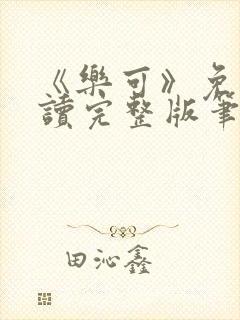 《樂可》免
讀完整版筆
田沁鑫